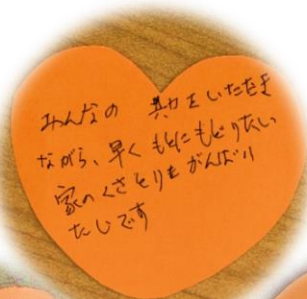 みんなの 力をいただき
ながら、早くもとにもどりたい
家のくさとりもがんばり
たいです